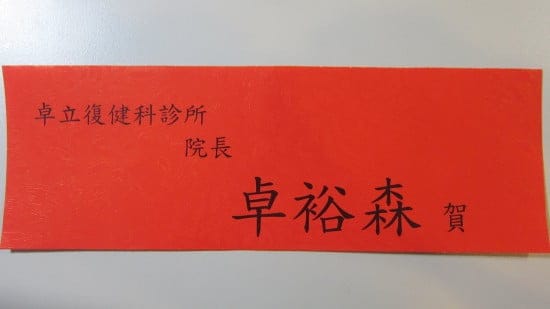 卓立復健科診所
院長
卓裕森 賀